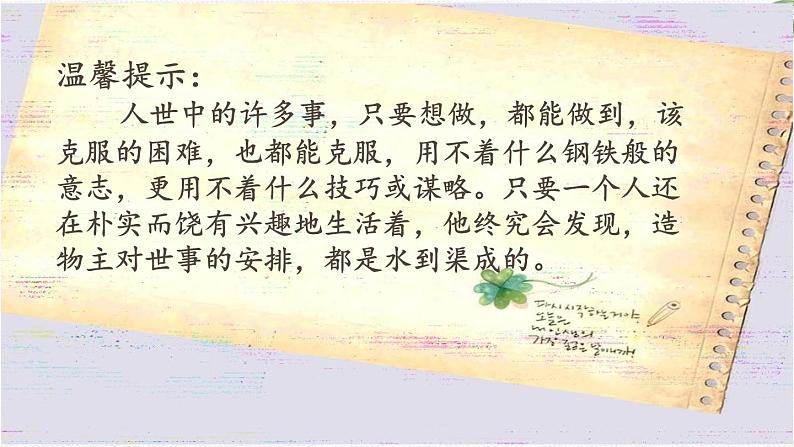 温馨提示：
人世中的许多事，只要想做，都能做到，该
克服的困难，也都能克服，用不着什么钢铁般的
意志，更用不着什么技巧或谋略。只要一个人还
在朴实而饶有兴趣地生活着，他终究会发现，造
物主对世事的安排，都是水到渠成的。
다시 시작하는거야
오늘은
내 인생의
가장 젊은 날이니까!